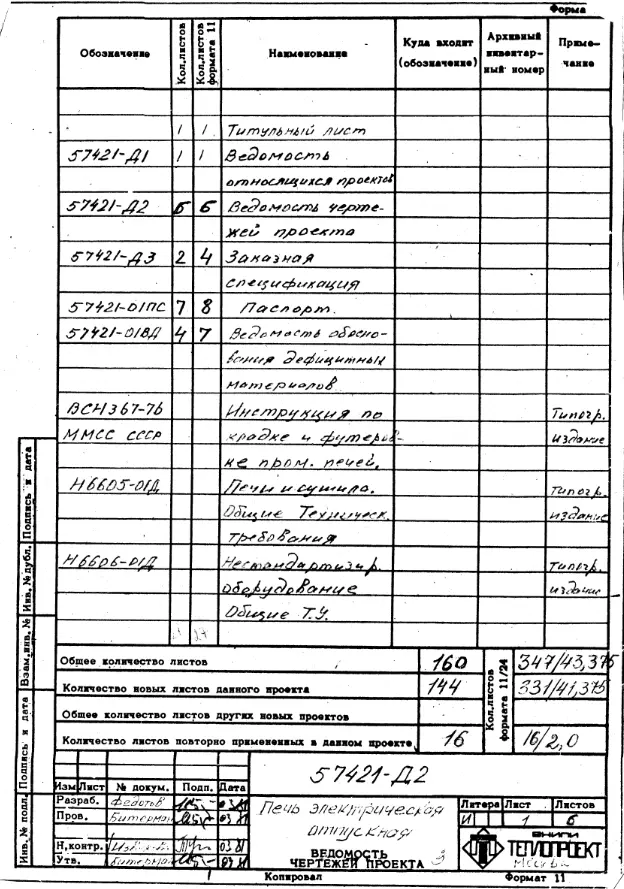 Форма
Обозначение
Кол.листов
Кол.листов формата 11
Наименование
Куда входит (обозначение)
Архивный инвентарный номер
Примечание
1 1 Титульный лист
57421-Д1 1 1 Ведомость
относящихся проектов
57421-Д2 6 6 Ведомость черте-
жей проекта
57421-Д3 2 4 Заказная
спецификация
57421-01ПС 7 8 Паспорт.
57421-01ВД 4 7 Ведомость обосно-
вания дефицитных
материалов
ВСН 367-76 Инструкция по Типогр.
ММСС СССР кладке и футеров- издание
ке пром. печей.
Н6605-01Д Печи и сушила. типогр.
Общие Техническ. издание
требования
Н6606-01Д Нестандартизир. типогр.
оборудование издание
Общие Т.У.
Общее количество листов 160 347/43,375
Количество новых листов данного проекта 144 331/41,375
Общее количество листов других новых проектов
Количество листов повторно примененных в данном проекте 16 16/2,0
Кол.листов формата 11/24
57421-Д2
Изм Лист № докум. Подп. Дата
Разраб. Федотов 03.81
Пров. Битерман 03.81
Н.контр. 03.81
Утв. Битерман 03.81
Печь электрическая
отпускная
ВЕДОМОСТЬ
ЧЕРТЕЖЕЙ ПРОЕКТА 3
Литера Лист Листов
И 1 6
ВНИПИ
ТЕПЛОПРОЕКТ
Москва
Копировал Формат 11
Инв. № подл. Подпись и дата Взам. инв. № Инв. № дубл. Подпись и дата